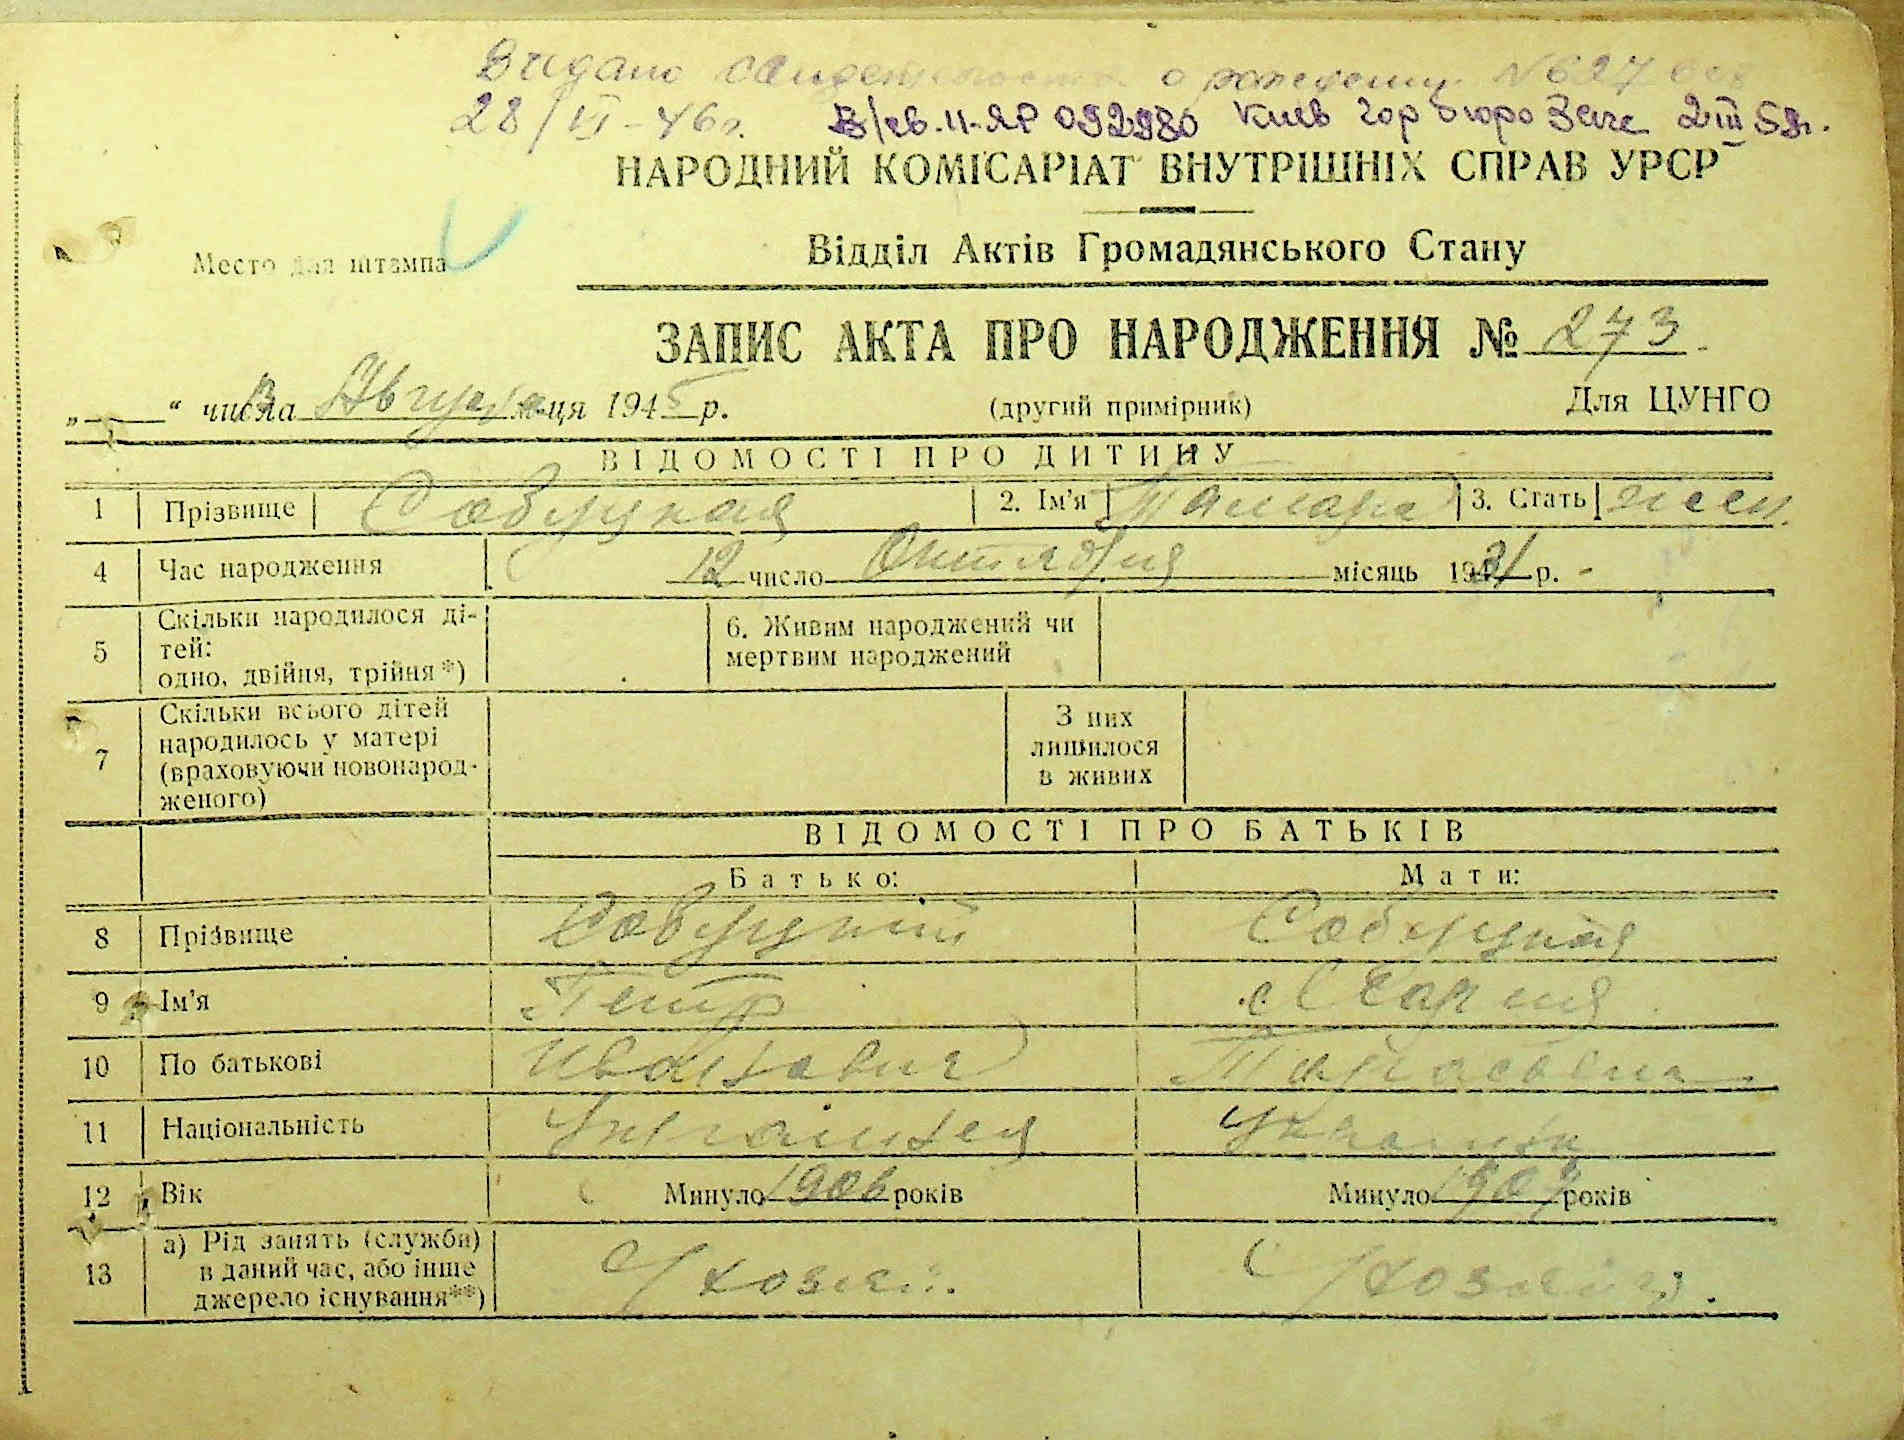 Видано свидетельство о рождении №627
28/VI-46г. В/св. II-ЯР 092980 Киев гор бюро Загс 2 III 59г.
НАРОДНИЙ КОМІСАРІАТ ВНУТРІШНІХ СПРАВ УРСР
Место для штампа
Відділ Актів Громадянського Стану
ЗАПИС АКТА ПРО НАРОДЖЕННЯ № 273
„ “ числа Августа м-ця 1945 р. (другий примірник) Для ЦУНГО
ВІДОМОСТІ ПРО ДИТИНУ
1 Прізвище Собуцкая 2. Ім'я Тамара 3. Стать жен.
4 Час народження 12 число Октября місяць 1931 р.
5 Скільки народилося ді-
тей:
одно, двійня, трійня*)
6. Живим народжений чи
мертвим народжений
7 Скільки всього дітей
народилось у матері
(враховуючи новонарод-
женого)
З них
лишилося
в живих
ВІДОМОСТІ ПРО БАТЬКІВ
Батько: Мати:
8 Прізвище Собуцкий Собуцкая
9 Ім'я Петр Мария
10 По батькові Иванович Тарасовна
11 Національність Украинец Украинка
12 Вік Минуло 1906 років Минуло 1907 років
13 а) Рід занять (служби)
в даний час, або інше
джерело існування**)